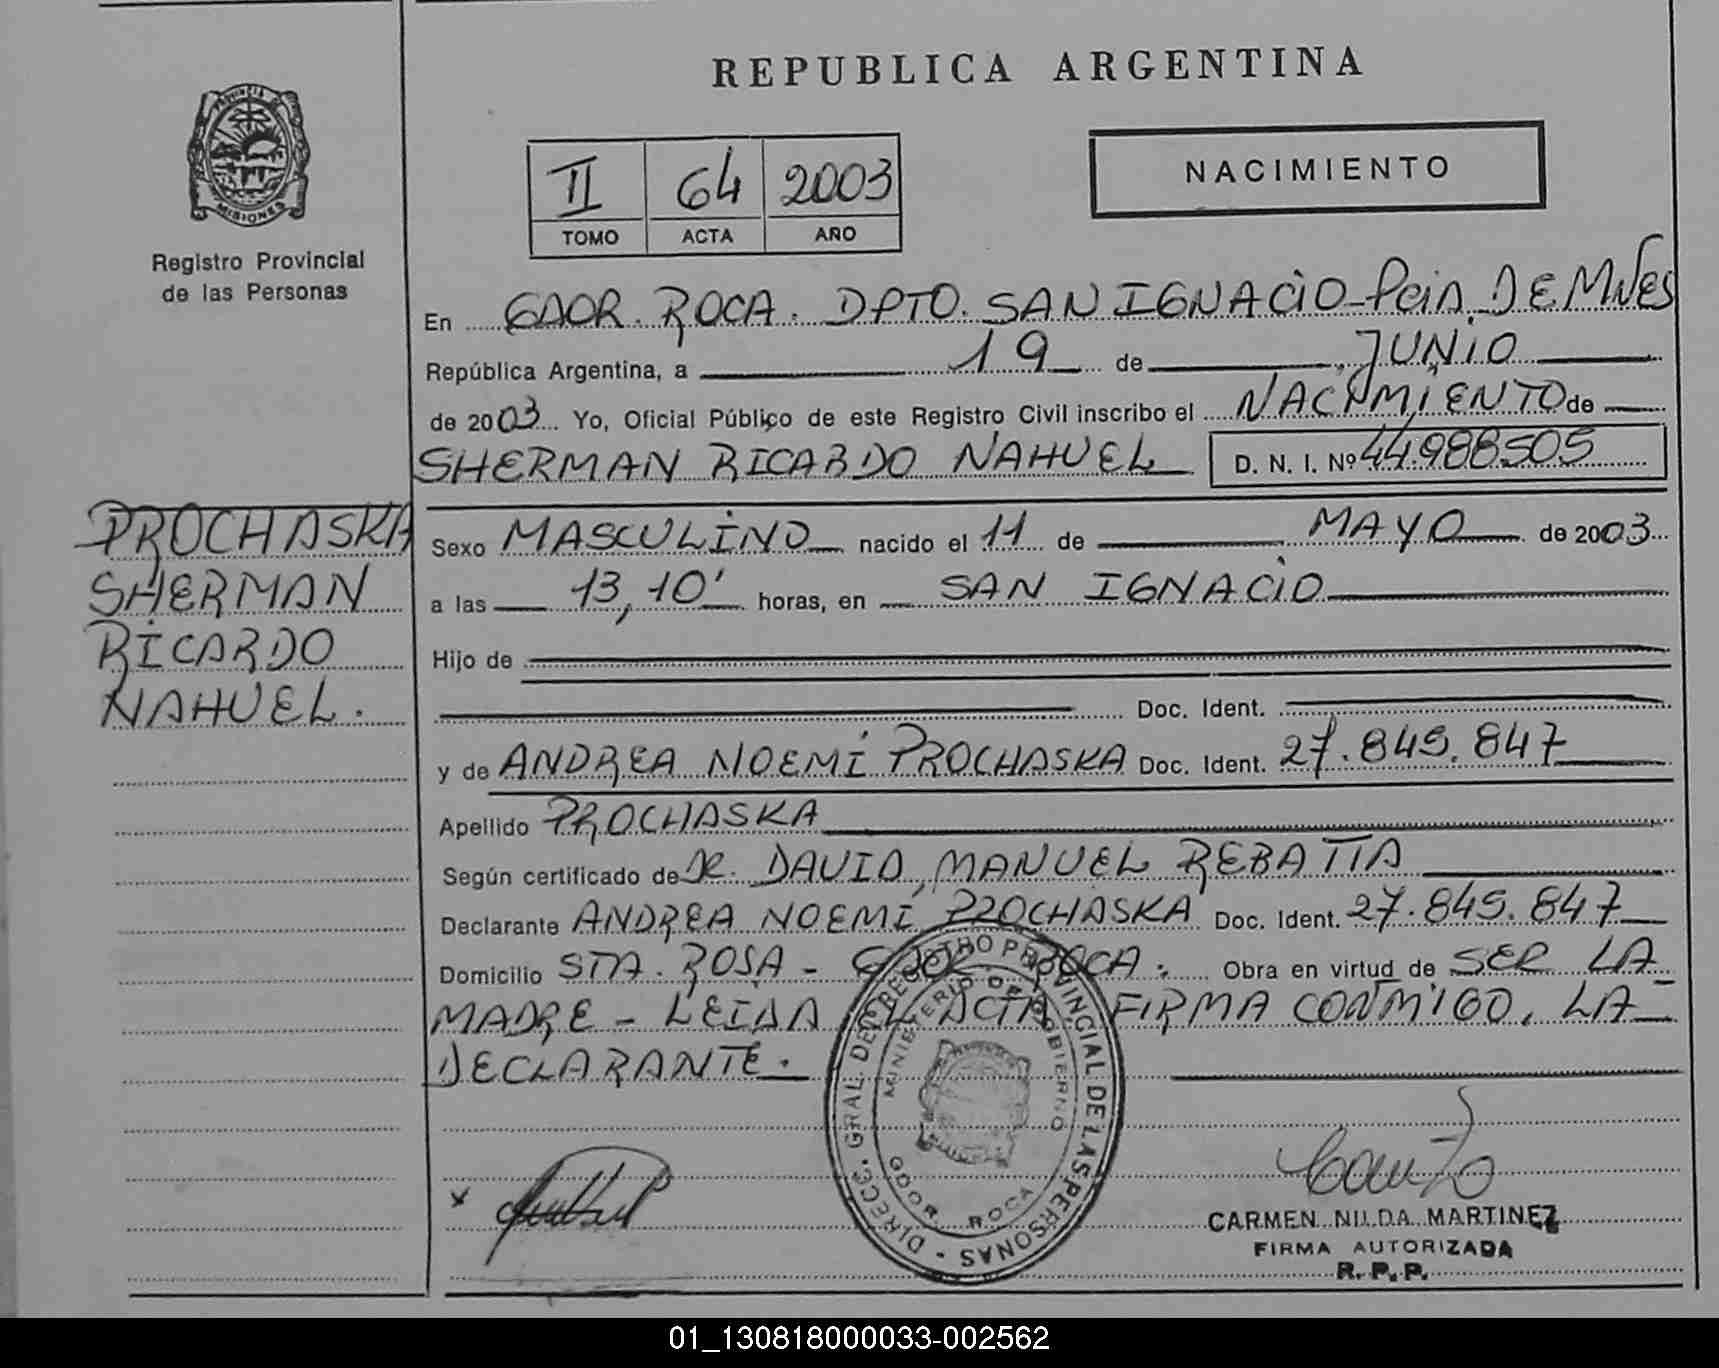 REPUBLICA ARGENTINA
PROVINCIA DE
MISIONES
Registro Provincial
de las Personas
II 64 2003
TOMO ACTA AÑO
NACIMIENTO
En GDOR. ROCA. DPTO. SAN IGNACIO-Pcia. DE Mnes
República Argentina, a 19 de JUNIO
de 2003 Yo, Oficial Público de este Registro Civil inscribo el NACIMIENTO de
SHERMAN RICARDO NAHUEL D. N. I. Nº 44.988505
PROCHASKA
SHERMAN
RICARDO
NAHUEL.
Sexo MASCULINO nacido el 11 de MAYO de 2003
a las 13,10' horas, en SAN IGNACIO
Hijo de
Doc. Ident.
y de ANDREA NOEMÍ PROCHASKA Doc. Ident. 27.845.847
Apellido PROCHASKA
Según certificado de DR. DAVID MANUEL REBATTA
Declarante ANDREA NOEMÍ PROCHASKA Doc. Ident. 27.845.847
Domicilio STA. ROSA - GDOR. ROCA. Obra en virtud de SER LA
MADRE - LEIDA EL ACTA FIRMA CONMIGO, LA
DECLARANTE.
DIREC. GRAL. DEL REGISTRO PROVINCIAL DE LAS PERSONAS
MINISTERIO DE GOBIERNO
GDOR. ROCA
CARMEN NILDA MARTINEZ
FIRMA AUTORIZADA
R. P. P.
01_130818000033-002562